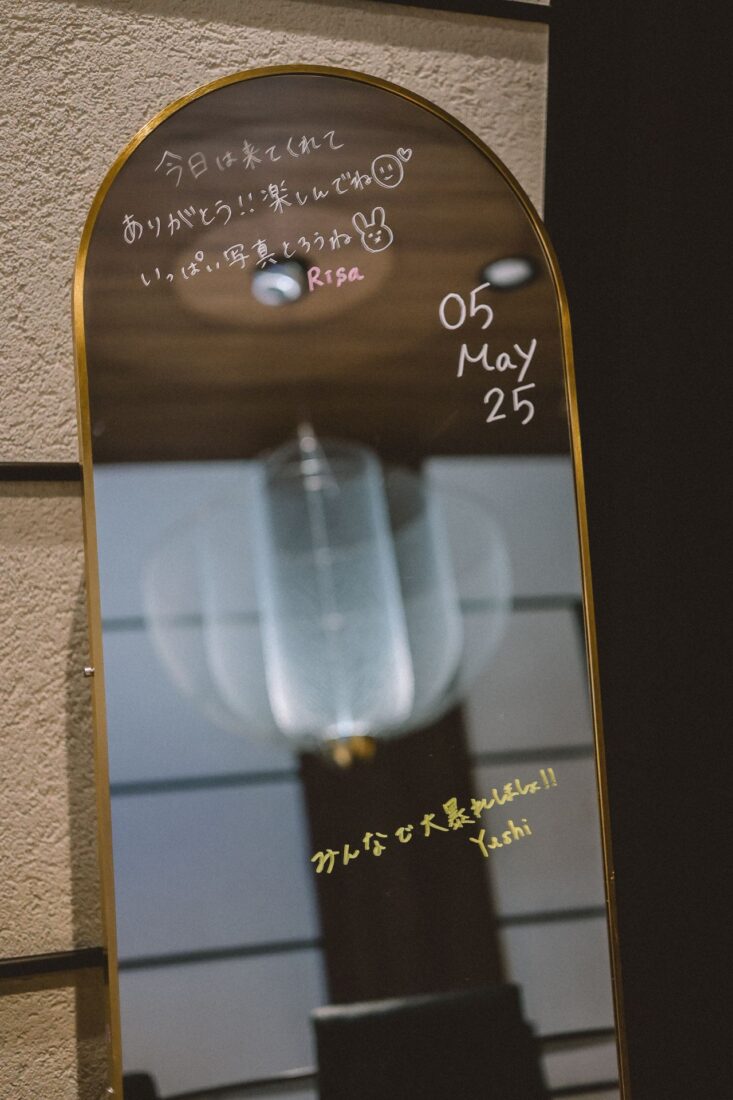 今日は来てくれて
ありがとう!!楽しんでね
いっぱい写真とろうね
Risa
05
May
25
みんなで大暴れしましょ!!
Yushi